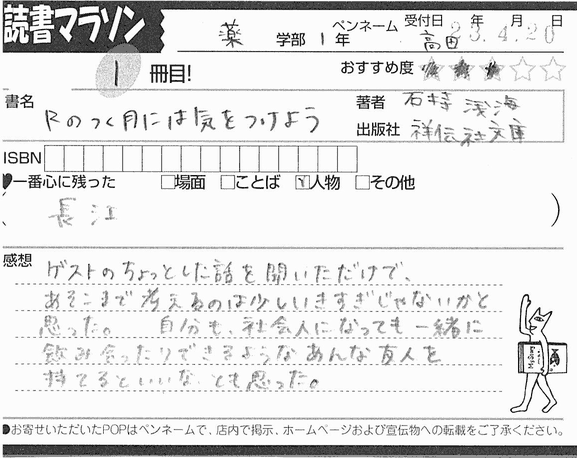 読書マラソン
薬 学部 1年 ペンネーム 高田 受付日 23年4月20日
1 冊目! おすすめ度 ★★★☆☆
書名 Rのつく月には気をつけよう
著者 石持 浅海
出版社 祥伝社文庫
ISBN
一番心に残った □場面 □ことば ☑人物 □その他
( 長江 )
感想 ゲストのちょっとした話を聞いただけで、
あそこまで考えるのは少しいきすぎじゃないかと
思った。 自分も、社会人になっても一緒に
飲み会ったりできるようなあんな友人を
持てるといいな、とも思った。
●お寄せいただいたPOPはペンネームで、店内で掲示、ホームページおよび宣伝物への転載をご了承ください。